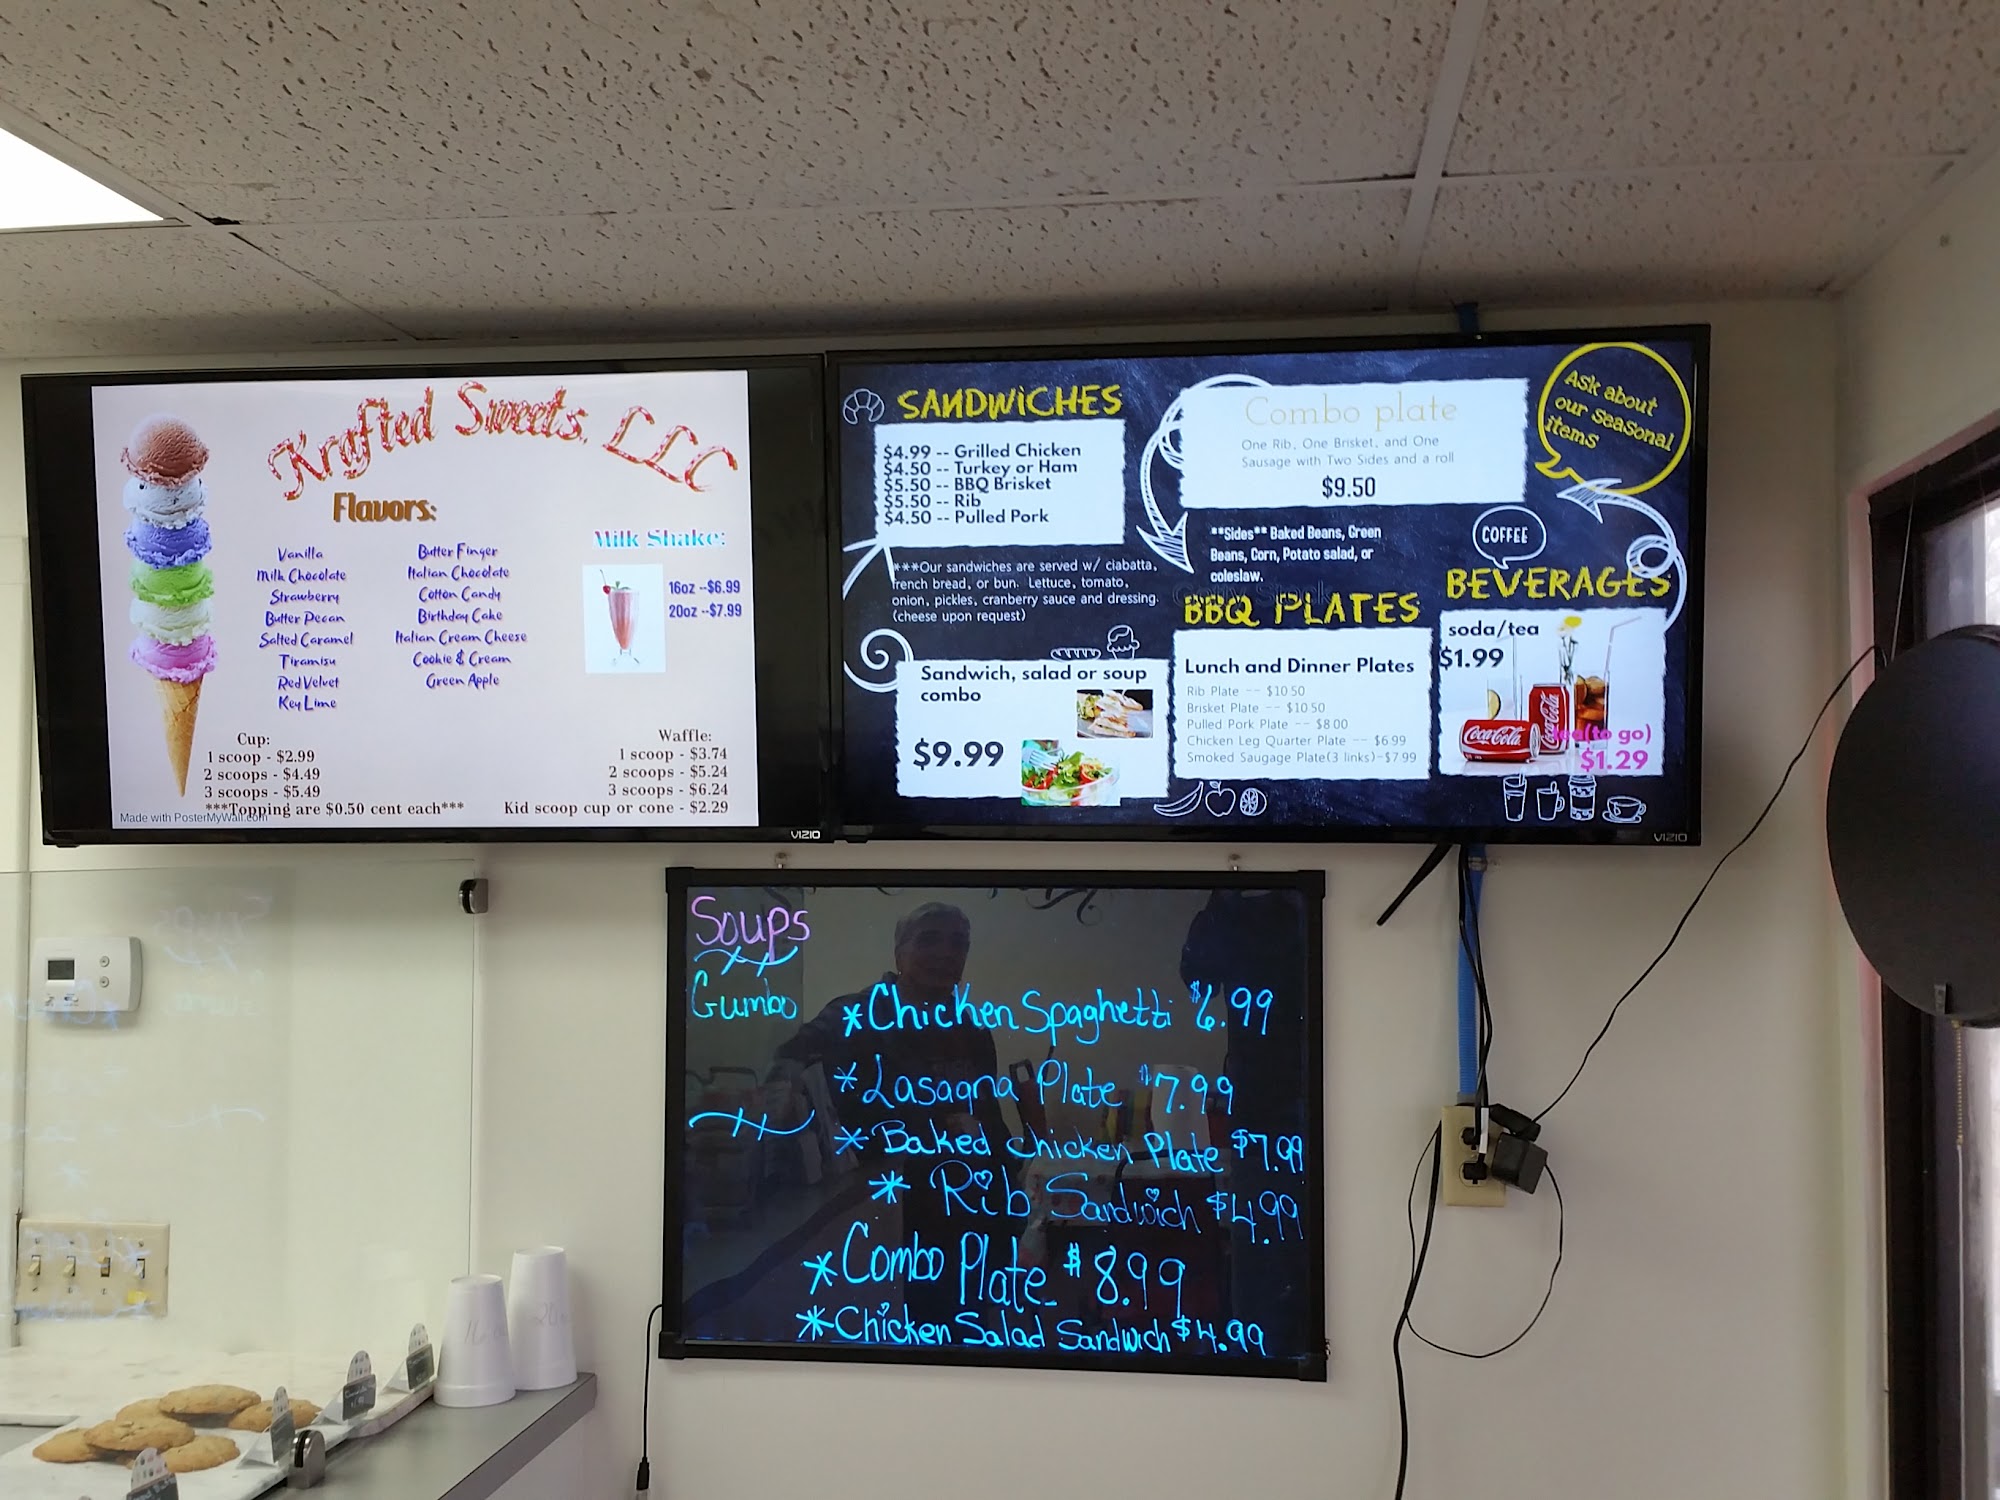 Krafted Sweets, LLC
Flavors:
Vanilla
Milk Chocolate
Strawberry
Butter Pecan
Salted Caramel
Tiramisu
Red Velvet
Key Lime
Butter Finger
Italian Chocolate
Cotton Candy
Birthday Cake
Italian Cream Cheese
Cookie & Cream
Green Apple
Milk Shake:
16oz --$6.99
20oz --$7.99
Cup:
1 scoop - $2.99
2 scoops - $4.49
3 scoops - $5.49
Waffle:
1 scoop - $3.74
2 scoops - $5.24
3 scoops - $6.24
***Topping are $0.50 cent each***
Kid scoop cup or cone - $2.29
Made with PosterMyWall.com
VIZIO
SANDWiCHES
$4.99 -- Grilled Chicken
$4.50 -- Turkey or Ham
$5.50 -- BBQ Brisket
$5.50 -- Rib
$4.50 -- Pulled Pork
***Our sandwiches are served w/ ciabatta,
french bread, or bun. Lettuce, tomato,
onion, pickles, cranberry sauce and dressing.
(cheese upon request)
Sandwich, salad or soup
combo
$9.99
Combo plate
One Rib, One Brisket, and One
Sausage with Two Sides and a roll
$9.50
**Sides** Baked Beans, Green
Beans, Corn, Potato salad, or
coleslaw.
BBQ PLATES
Lunch and Dinner Plates
Rib Plate -- $10.50
Brisket Plate -- $10.50
Pulled Pork Plate -- $8.00
Chicken Leg Quarter Plate -- $6.99
Smoked Saugage Plate(3 links)-$7.99
Ask about
our seasonal
items
COFFEE
BEVERAGES
soda/tea
$1.99
Coca-Cola
Coca-Cola
tea(to go)
$1.29
VIZIO
Soups
Gumbo
*Chicken Spaghetti $6.99
*Lasagna Plate $7.99
*Baked Chicken Plate $7.99
*Rib Sandwich $4.99
*Combo Plate $8.99
*Chicken Salad Sandwich $4.99